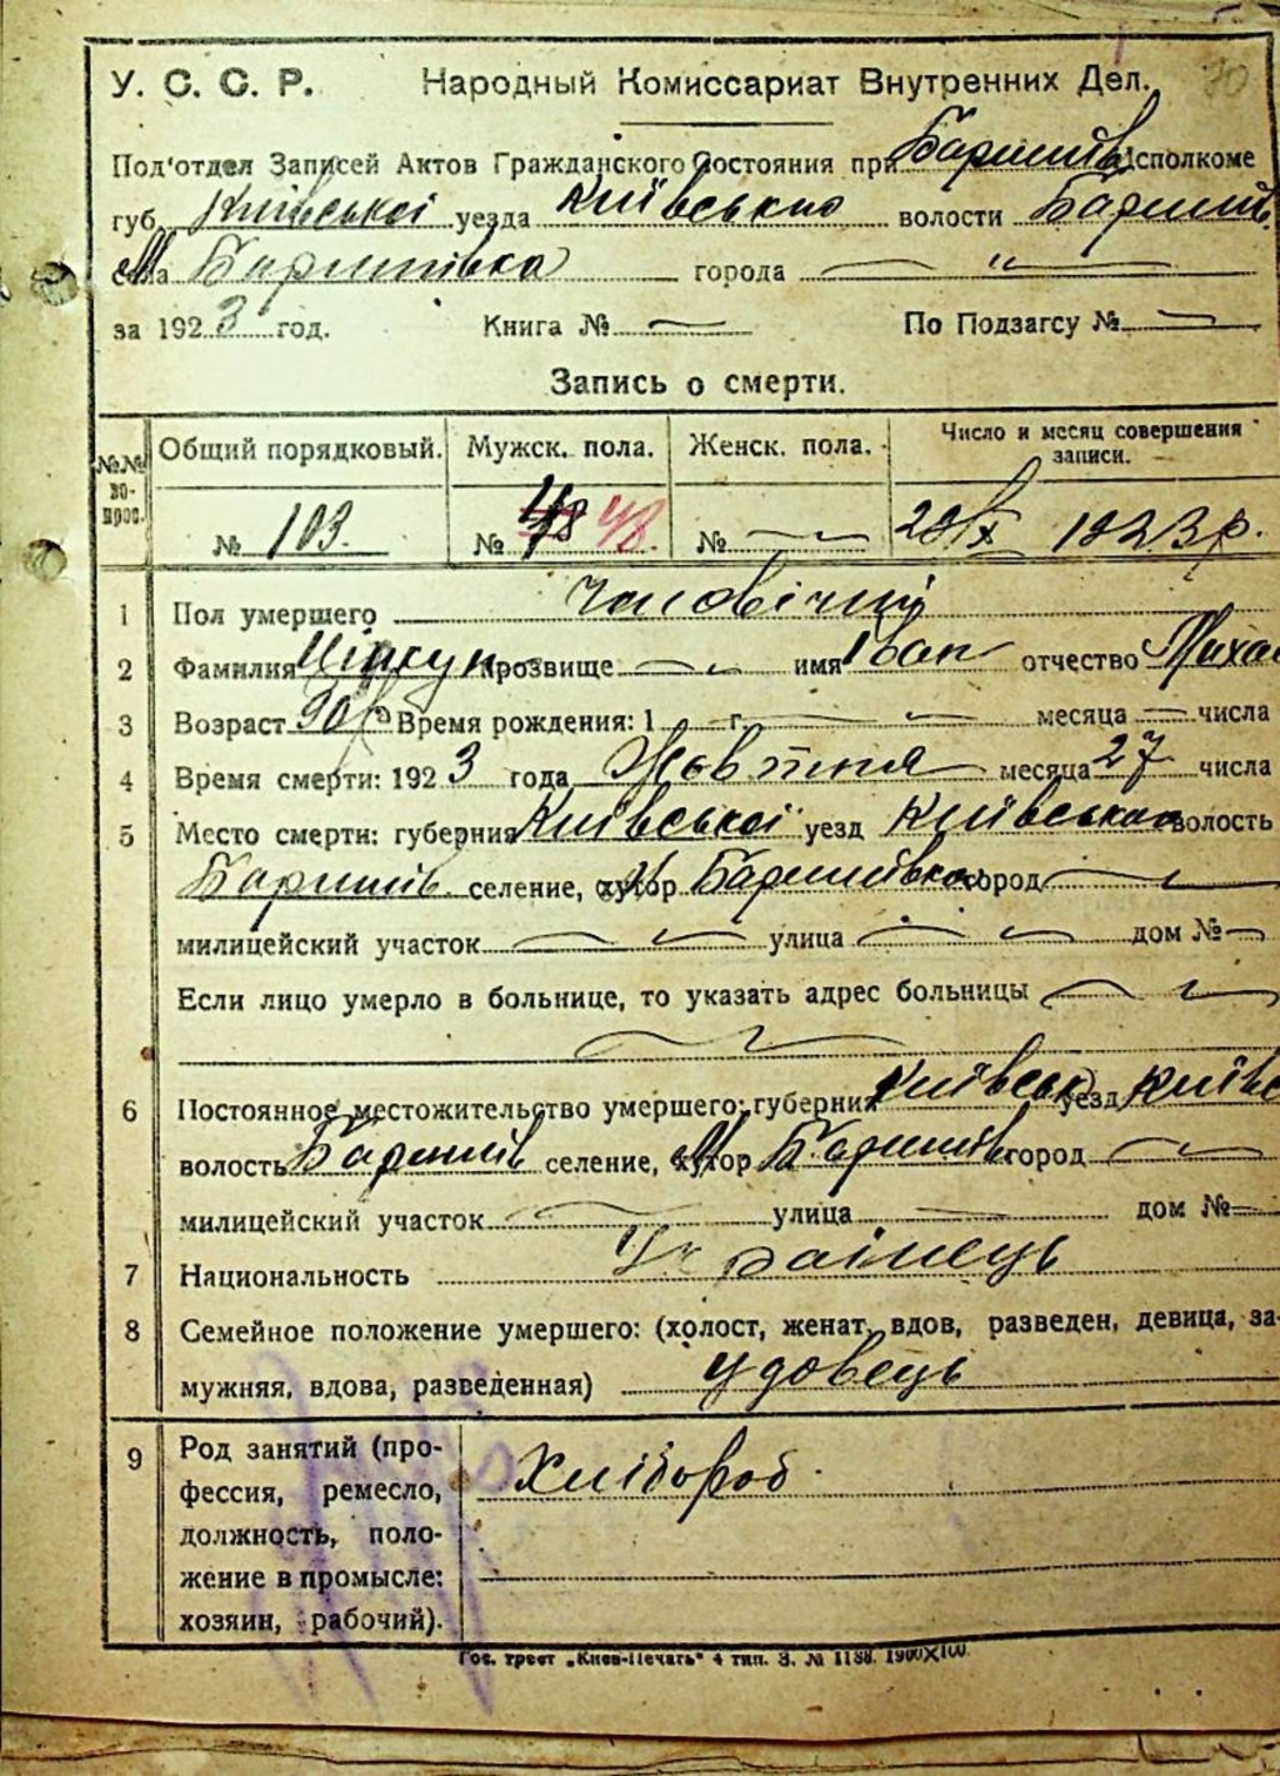 У. С. С. Р. Народный Комиссариат Внутренних Дел.
Под'отдел Записей Актов Гражданского Состояния при Баришів Исполкоме
губ. Київської уезда Київського волости Баришів.
села М Баришівка города — " —
за 1923 год. Книга № — По Подзагсу № —
Запись о смерти.
№№ вопрос. Общий порядковый. Мужск. пола. Женск. пола. Число и месяц совершения записи.
№ 103. № 48 48. № — 1923 р.
1 Пол умершего Чоловічий
2 Фамилия прозвище — имя Іван отчество Миха
3 Возраст 90 р Время рождения: 1 — г. — месяца — числа
4 Время смерти: 1923 года Жовтня месяца 27 числа
5 Место смерти: губерния Київської уезд Київського волость
Баришів. селение, хутор М Баришівка город —
милицейский участок — улица — дом № —
Если лицо умерло в больнице, то указать адрес больницы —
6 Постоянное местожительство умершего: губерния Київськ уезд Київс
волость Баришів селение, хутор М Баришівк город —
милицейский участок — улица — дом № —
7 Национальность Українець
8 Семейное положение умершего: (холост, женат, вдов, разведен, девица, за-
мужняя, вдова, разведенная) удовець
9 Род занятий (про- Хлібороб.
фессия, ремесло,
должность, поло-
жение в промысле:
хозяин, рабочий).
Гос. трест „Киев-Печать" 4 тип. З. № 1188. 1900Х100.